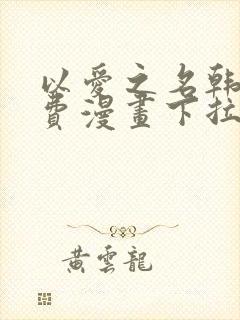 以愛之名韩
費漫畫下拉
黃雲龍